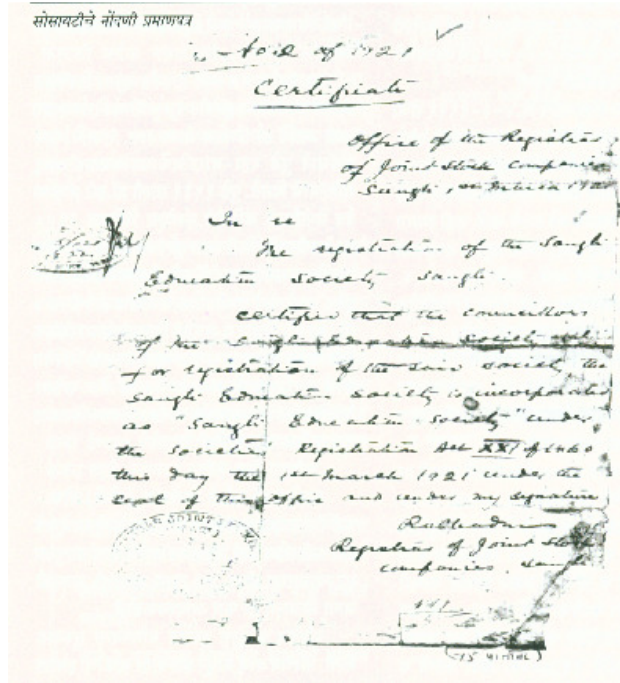 सोसायटीचे नोंदणी प्रमाणपत्र
of 1921
Certificate
Office of the Registrar
of Joint Stock Companies
Sangli, 1st March 1921
In re
The registration of the Sangli
Education Society Sangli.
certifies that the councillors
of the Sangli Education Society
for registration of the said society, the
Sangli Education Society is incorporated
as "Sangli Education Society" under
the Societies Registration Act XXI of 1860
this day the 1st March 1921 under the
seal of this office and under my signature
Registrar of Joint Stock
Companies, Sangli